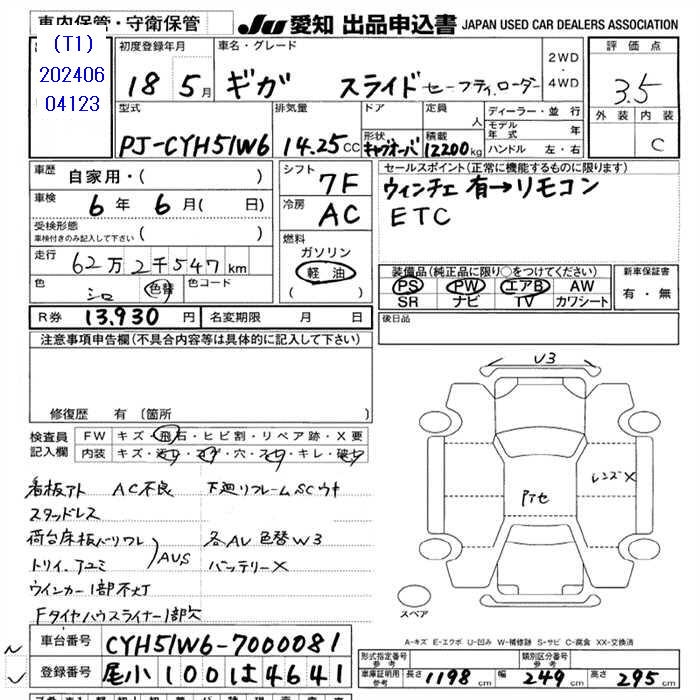 車内保管・守衛保管
JU 愛知 出品申込書 JAPAN USED CAR DEALERS ASSOCIATION
(T1)
202406
04123
初度登録年月
18 5月
車名・グレード
ギガ スライド セーフティローダー
2WD
・
4WD
評価点
3.5
外装 内装
C
型式
PJ-CYH51W6
排気量
14.25cc
ドア
形状
キャブオーバ
定員
人
積載
12200kg
ディーラー・並行
モデル年式 年
ハンドル 左・右
車歴
自家用・( )
車検
6年 6月( 日)
受検形態
車検付きのみ記入して下さい ( )
走行
62万2千547km
色
シロ
色替
色コード
シフト
7F
冷房
AC
燃料
ガソリン
軽油
( )
セールスポイント(正常に機能するものに限ります)
ウィンチ 有→リモコン
ETC
装備品(純正品に限り○をつけてください)
PS PW エアB AW
SR ナビ TV カワシート
新車保証書
有・無
R券 13,930円
名変期限 月 日
後日品
注意事項申告欄(不具合内容等は具体的に記入して下さい)
修復歴 有 (箇所 )
検査員
記入欄
FW キズ・飛石・ヒビ割・リペア跡・X要
内装 キズ・汚レ・コゲ・穴・スレ・キレ・破レ
看板アト AC不良 下廻りフレームSCウキ
スタッドレス
荷台床板バリワレ
トリイ、アユミ
AUS
各AU 色替W3
バッテリーX
ウインカー1部不灯
Fタイヤハウスライナー1部欠
U3
レンズX
スペア
A-キズ E-エクボ U-凹み W-補修跡 S-サビ C-腐食 XX-交換済
車台番号 CYH51W6-7000081
登録番号 尾小 100 は 4641
形式指定番号
参考
類別区分番号
参考
車庫証明用
参考
長さ 1198cm 巾 249cm 高さ 295cm